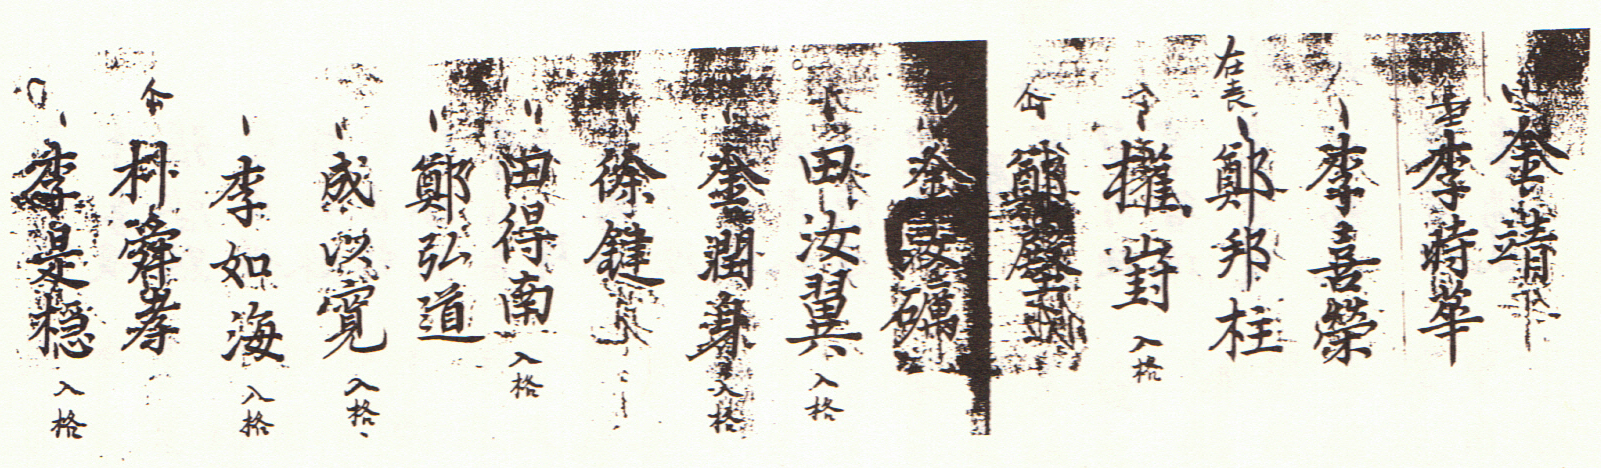 金靖
李時華
李喜榮
在喪 鄭邦柱
權對 入格
鄭
金汝礪
田汝翼 入格
金潤身 入格
徐鍵
田得南 入格
鄭弘道
成以寬 入格
李如海 入格
朴舜孝
李是穩 入格